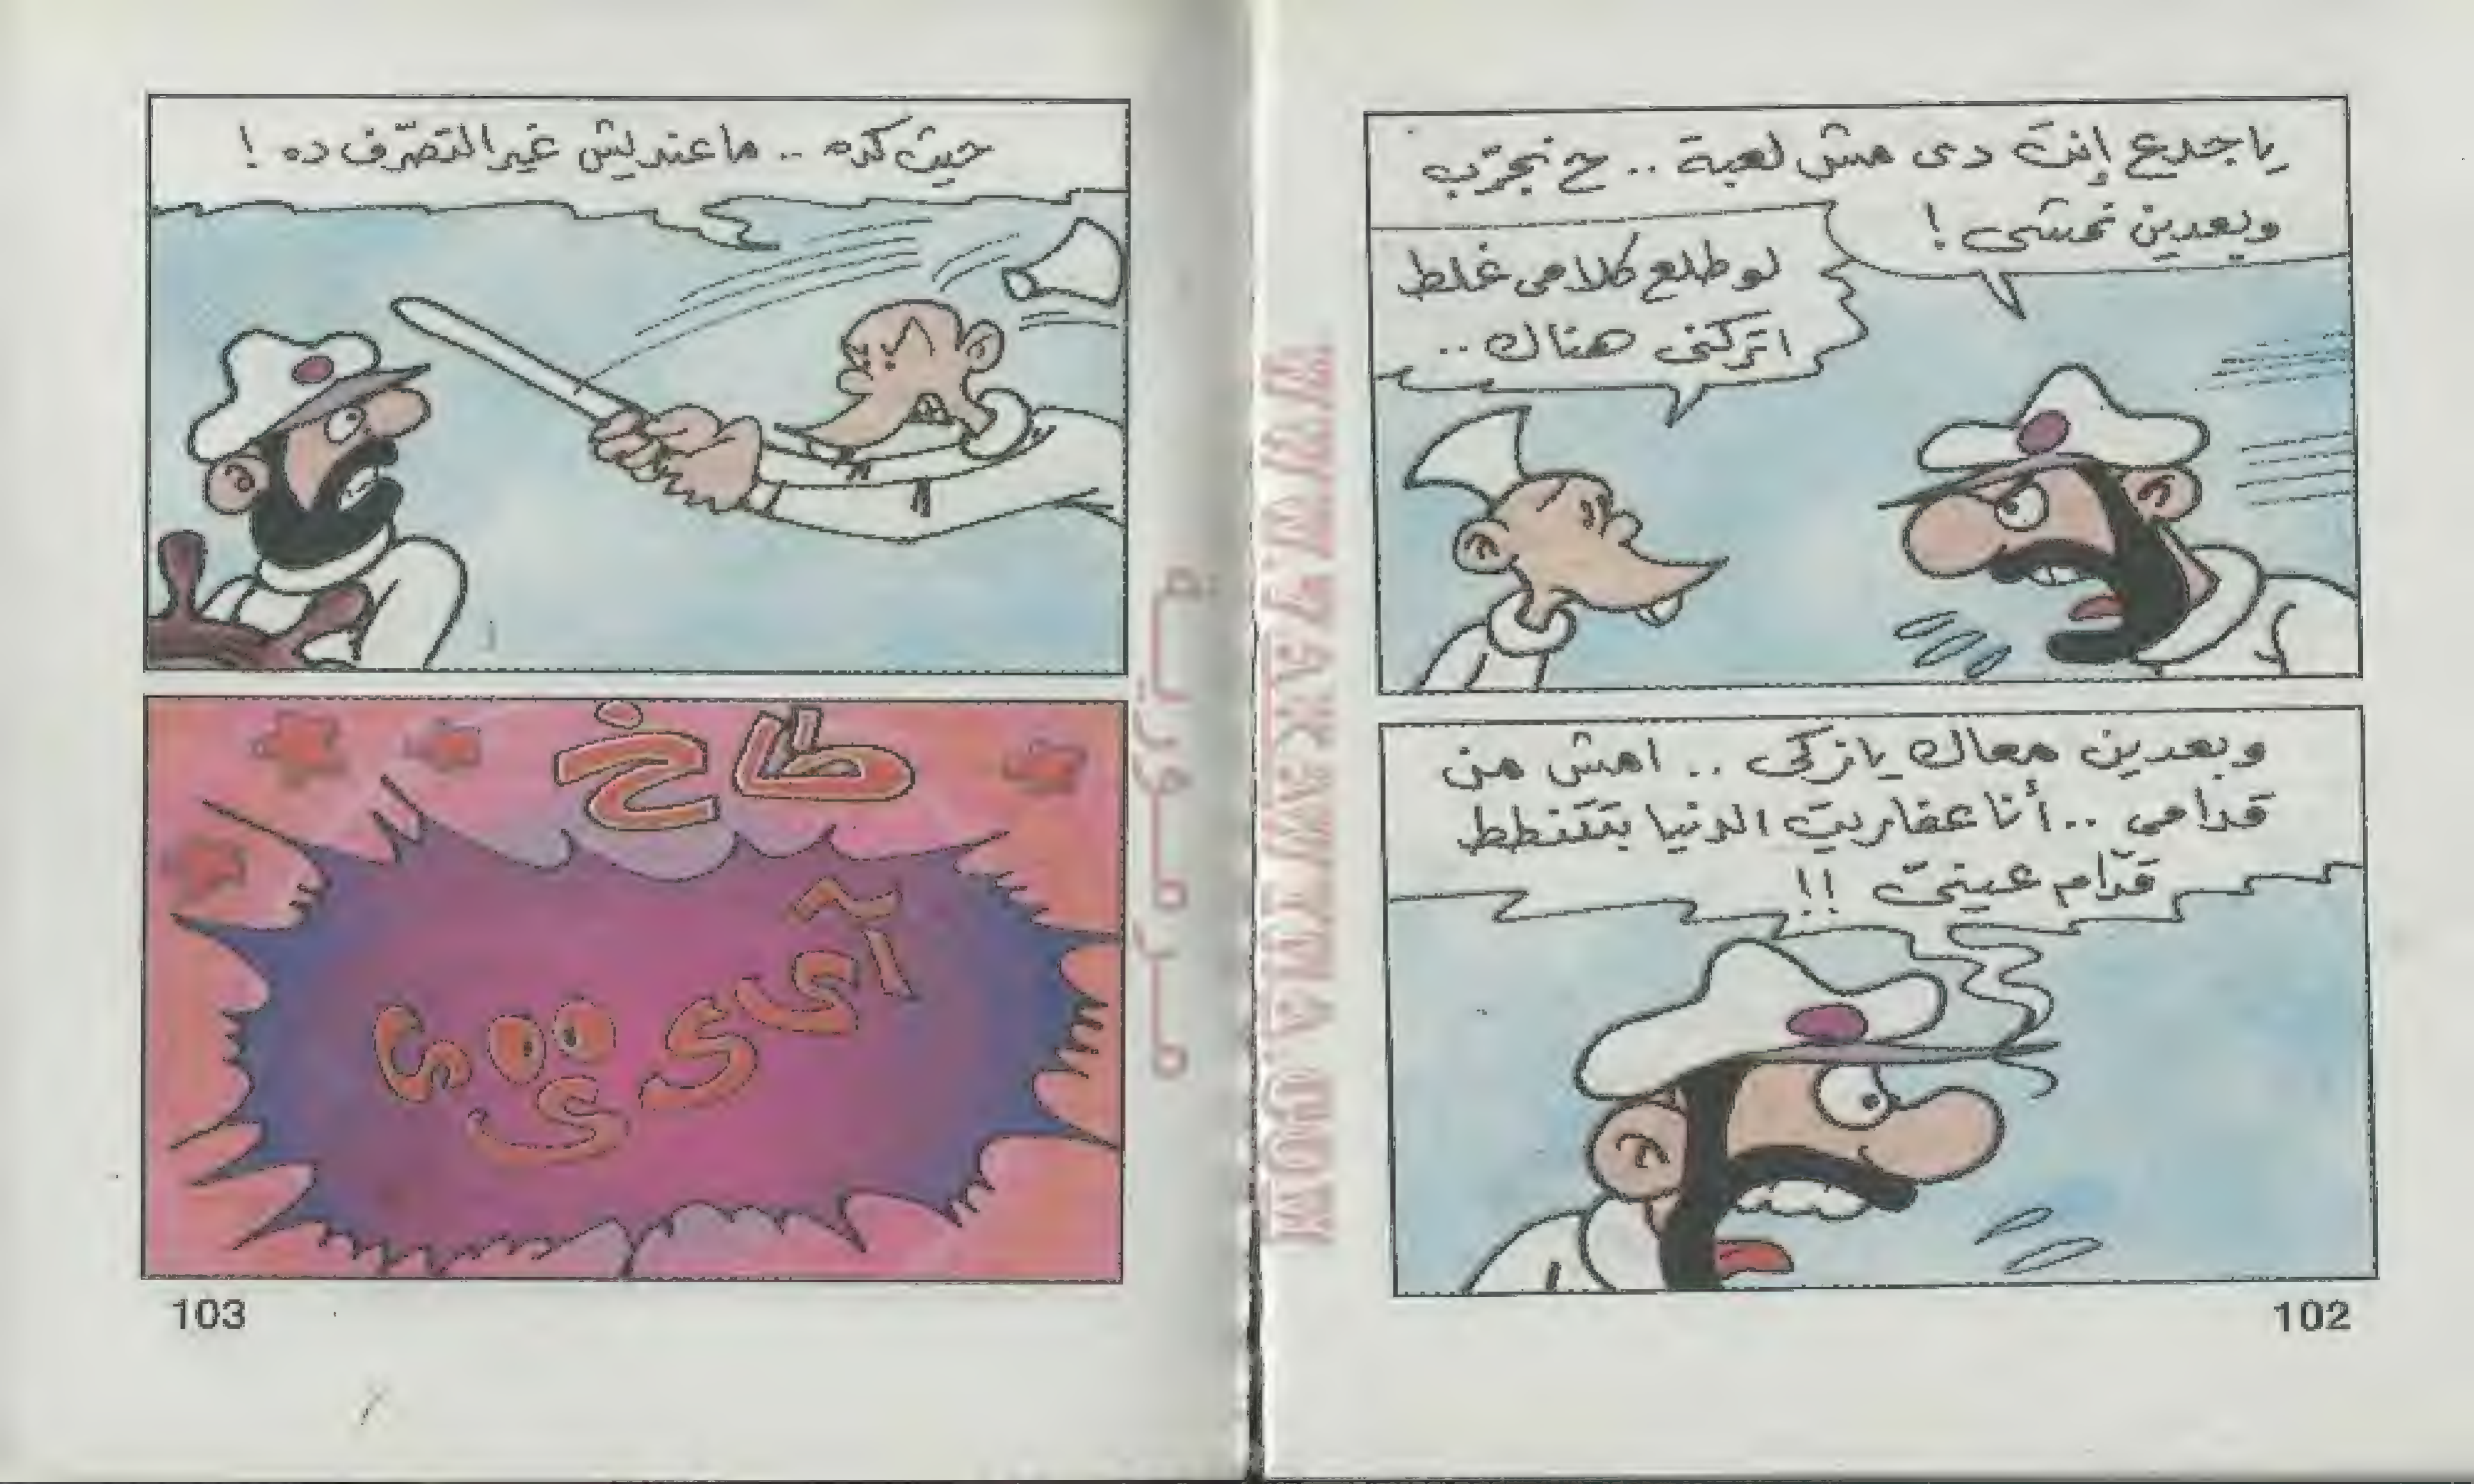 يا جدع إنت دى مش لعبة .. ح نجرّب
وبعدين نمشى !
لو طلع كلامى غلط
اتركنى هناك ..
وبعدين معاك يا زكى .. امش من
قدامى .. أنا عفاريت الدنيا بتتنطط
قدّام عينىّ !!
102
حيث كده .. ما عنديش غير التصرّف ده !
طاخ
103